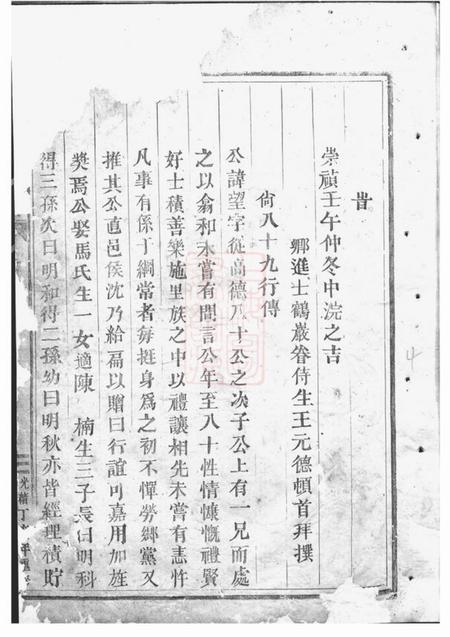 昔
崇禎壬午仲冬中浣之吉
鄉進士鶴巖眷侍生王元德頓首拜撰
尙八十九行傳
公諱望字從高德九十公之次子公上有一兄而處
之以翕和未嘗有間言公年至八十性情慷慨禮賢
好士積善樂施里族之中以禮讓相先未嘗有忐忤
凡事有係于綱常者每挺身爲之初不憚勞鄉黨又
推其公直邑侯沈乃給匾以贈曰行誼可嘉用加旌
奬焉公娶馬氏生一女適陳 楠生三子長曰明科
得三孫次曰明和得二孫幼曰明秋亦皆經理積貯
光霽丁